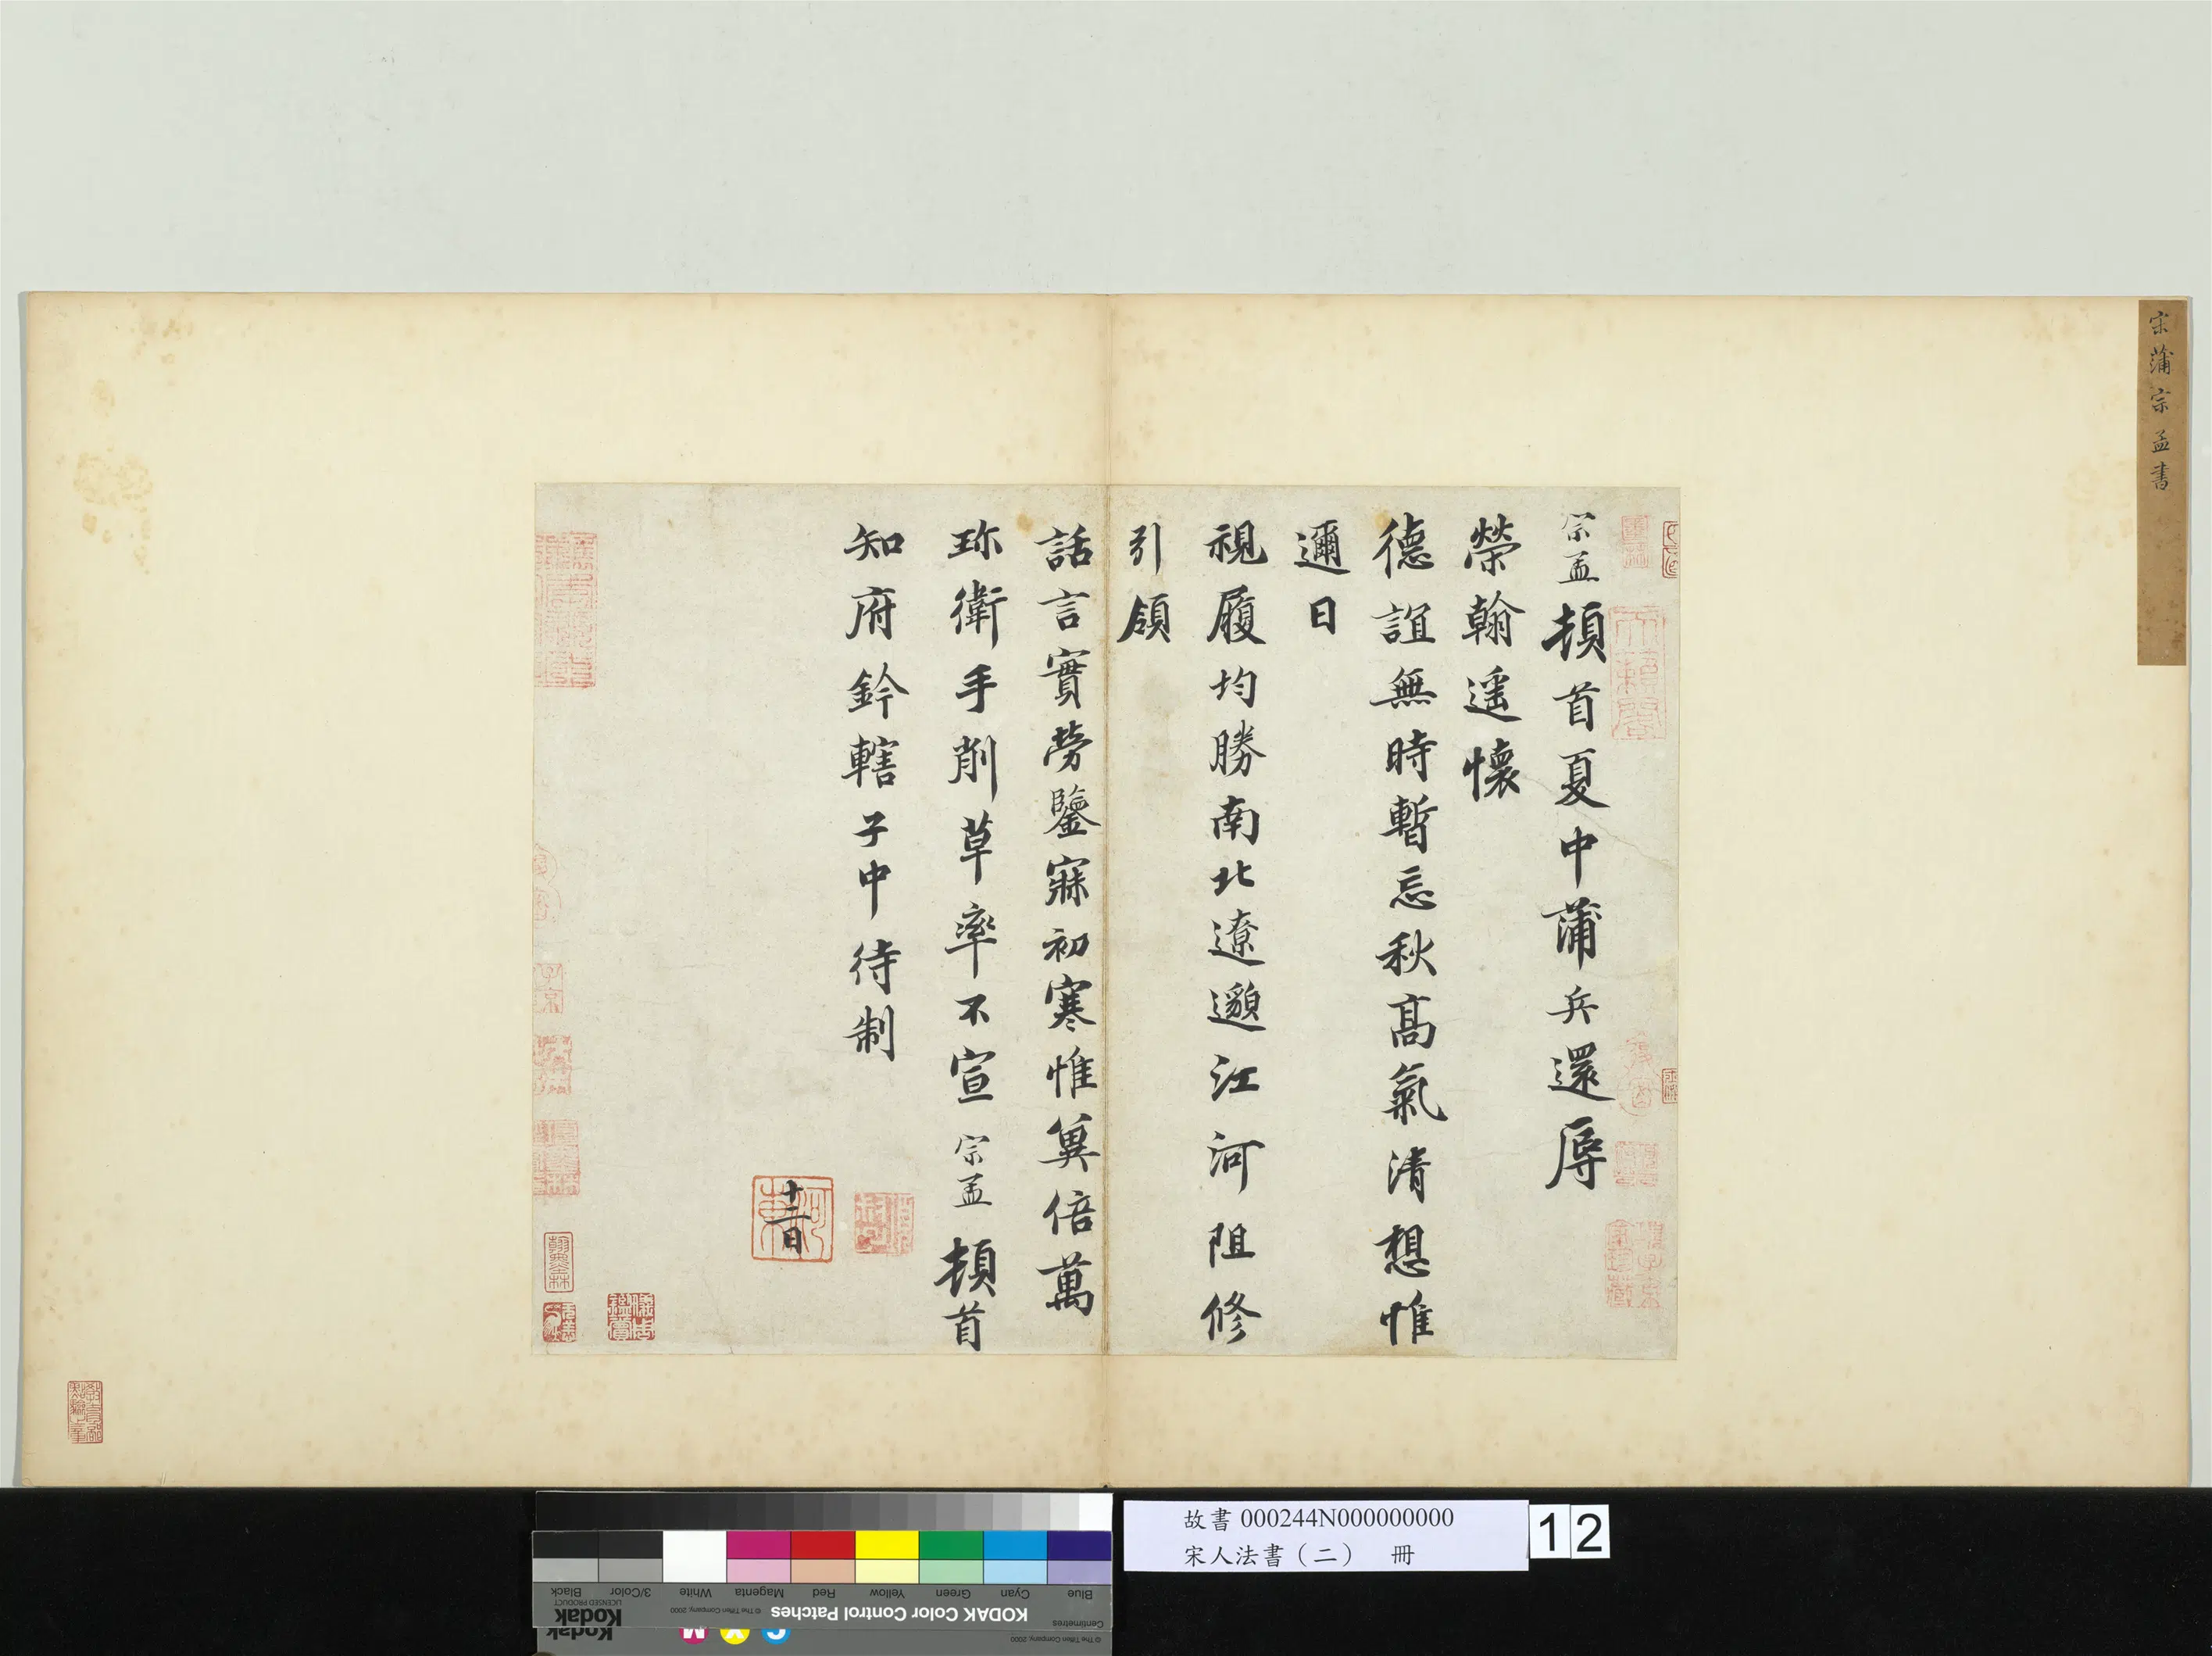 宋蒲宗孟書
宗孟頓首夏中蒲兵還辱
榮翰遥懷
德誼無時暫忘秋髙氣清想惟
邇日
視履均勝南北遼邈江河阻修
引領
話言實勞鑒寐初寒惟兾倍萬
珎衛手削草率不宣宗孟頓首
知府鈐轄子中待制
十二日
天籟閣
子京
翰墨林
故書 000244N000000000
宋人法書（二） 冊
12
Blue
Cyan
Green
Yellow
Red
Magenta
White
3/Color
Black
Centimetres
KODAK Color Control Patches
© The Tiffen Company, 2000
Kodak
LICENSED PRODUCT
© The Tiffen Company, 2000
C
Y
M
Kodak